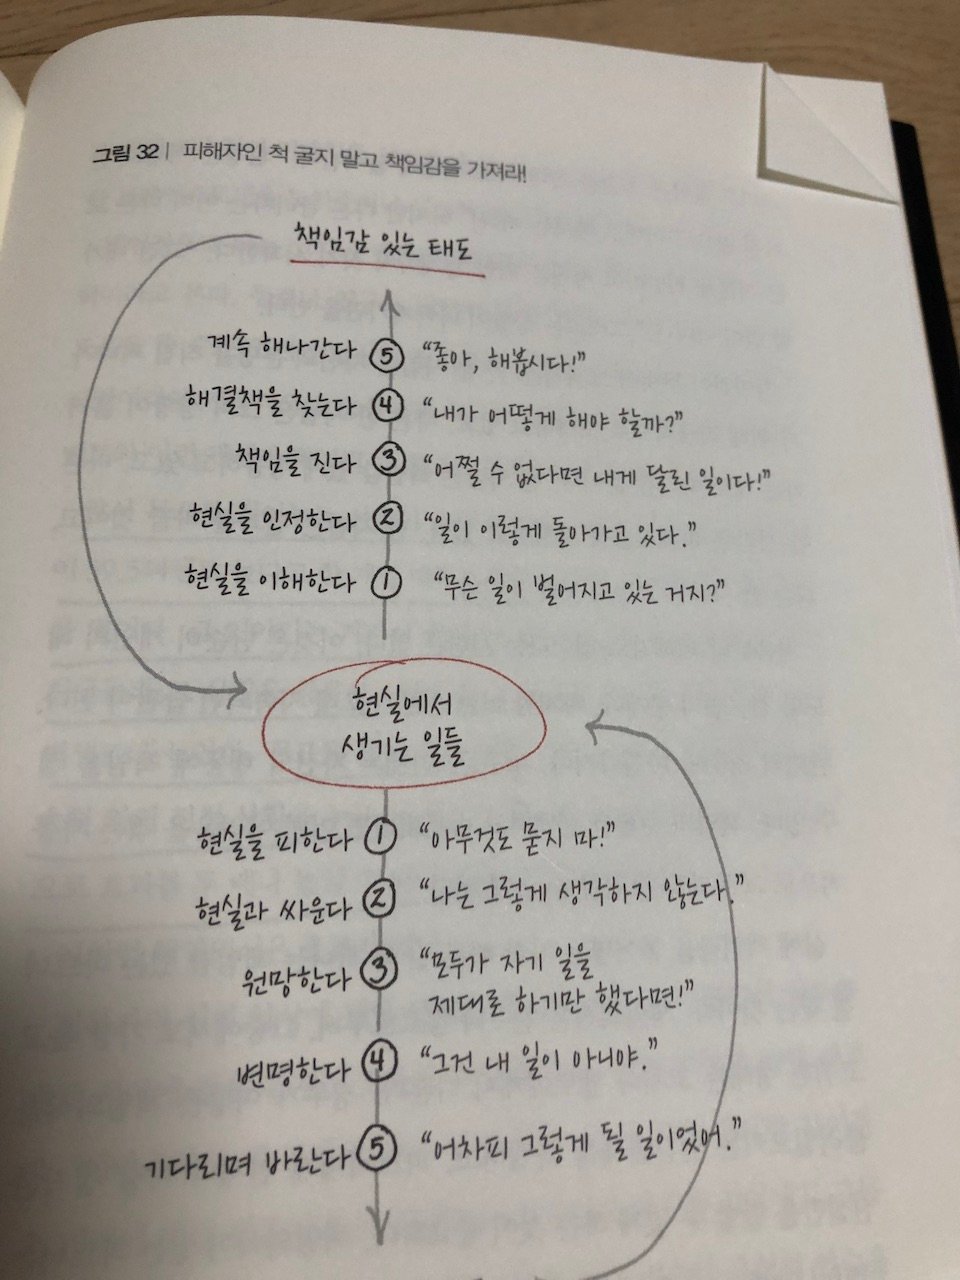 그림 32 | 피해자인 척 굴지 말고 책임감을 가져라!
책임감 있는 태도
계속 해나간다 ⑤ “좋아, 해봅시다!”
해결책을 찾는다 ④ “내가 어떻게 해야 할까?”
책임을 진다 ③ “어쩔 수 없다면 내게 달린 일이다!”
현실을 인정한다 ② “일이 이렇게 돌아가고 있다.”
현실을 이해한다 ① “무슨 일이 벌어지고 있는 거지?”
현실에서
생기는 일들
현실을 피한다 ① “아무것도 묻지 마!”
현실과 싸운다 ② “나는 그렇게 생각하지 않는다.”
원망한다 ③ “모두가 자기 일을
제대로 하기만 했다면!”
변명한다 ④ “그건 내 일이 아니야.”
기다리며 바란다 ⑤ “어차피 그렇게 될 일이었어.”